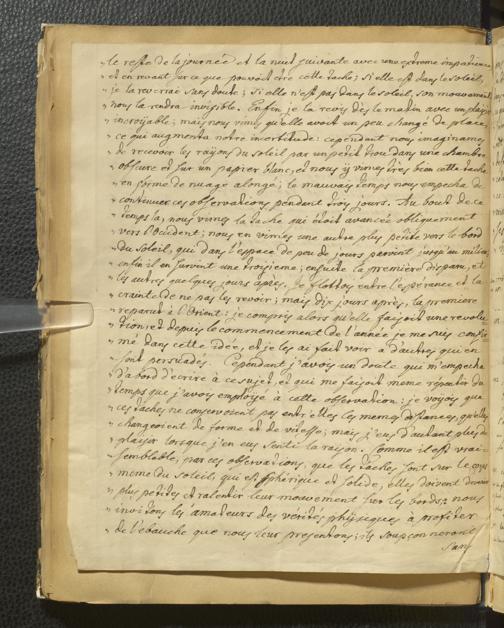 „ le reste de la journée et la nuit suivante avec une extreme impatience
„ et en revant sur ce que pouvoit être cette tache; si elle est dans le soleil,
„ je la reverrai sans doute; si elle n'est pas dans le soleil, son mouvement
„ nous la rendra invisible. Enfin je la revis dès le matin avec un plaisir
„ incroyable; mais nous vimes qu'elle avoit un peu changé de place,
„ ce qui augmenta notre incertitude: cependant nous imaginames
„ de recevoir les raÿons du soleil par un petit trou dans une chambre
„ obscure et sur un papier blanc, et nous ÿ vimes tres bien cette tache
„ en forme de nuage alongé; le mauvais temps nous empecha de
„ continuer ces observations pendant trois jours. Au bout de ce
„ temps la, nous vimes la tache qui étoit avancée obliquement
„ vers l'Occident; nous en vimes une autre plus petite vers le bord
„ du soleil, qui dans l'espace de peu de jours parvint jusqu'au milieu,
„ enfin il en survint une troisieme; ensuite la premiere disparu, et
„ les autres quelques jours après. Je flottois entre l'espérance et la
„ crainte de ne pas les revoir; mais dix jours après, la premiere
„ reparut à l'Orient: je compris alors qu'elle faisoit une revolu
„ tion; et depuis le commencement de l'année je me suis confir
„ mé dans cette idée, et je les ai fait voir à d'autres qui en
„ sont persuadés. Cependant j'avois un doute qui m'empecha
„ d'abord d'écrire à ce sujet, et qui me faisoit meme repentir du
„ temps que j'avois employé à cette observation: je voyois que
„ ces taches ne conservoient pas entr'elles les memes distances, qu'elles
„ changeoient de forme et de vitesse; mais j'eus d'autant plus de
„ plaisir lorsque j'en eus senti la raison. Comme il est vrai-
„ semblable, par ces observations, que les taches sont sur le corps
„ meme du soleil qui est sphérique et solide, elles doivent devenir
„ plus petites et ralentir leur mouvement sur les bords: nous
„ invitons les amateurs des vérités phÿsiques à profiter
„ de l'ebauche que nous leur presentons; ils soupçonneront
Sans